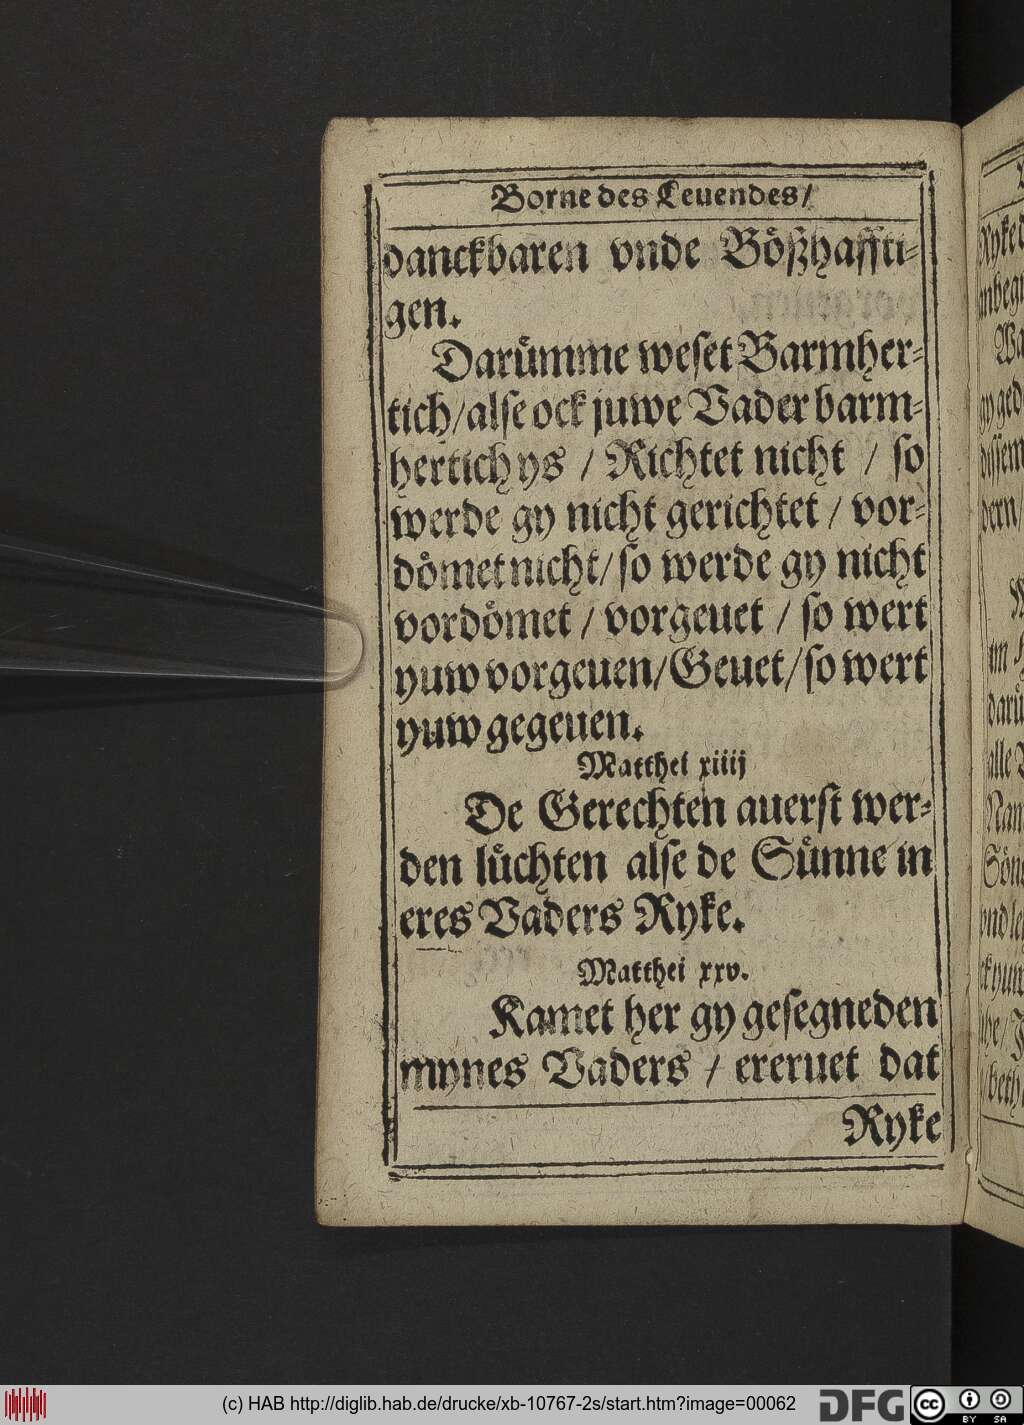 Borne des Leuendes/
danckbaren vnde Bößhaffti-
gen.
Darümme weset Barmher-
tich/alse ock juwe Vader barm-
hertich ys / Richtet nicht / so
werde gy nicht gerichtet / vor-
dömet nicht/ so werde gy nicht
vordömet / vorgeuet / so wert
yuw vorgeuen/Geuet/so wert
yuw gegeuen.
Matthei xiiij
De Gerechten auerst wer-
den lüchten alse de Sünne in
eres Vaders Ryke.
Matthei xxv.
Kamet her gy gesegneden
mynes Vaders /ereruet dat
Ryke
(c) HAB http://diglib.hab.de/drucke/xb-10767-2s/start.htm?image=00062
DFG
cc BY SA